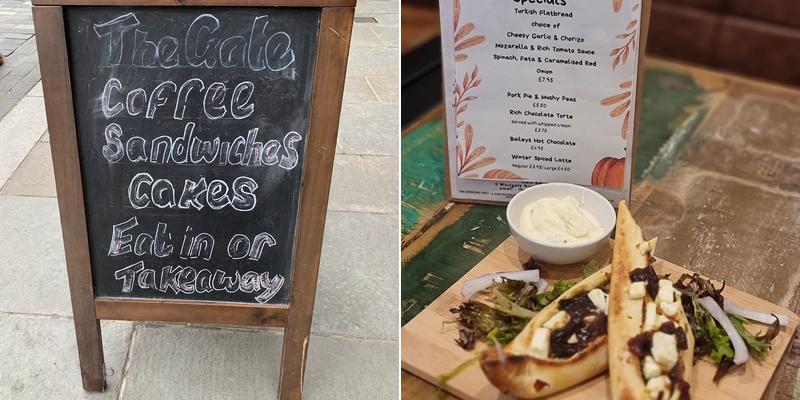 The Gate
Coffee
Sandwiches
Cakes
Eat in or
Takeaway
Specials
Turkish Flatbread
choice of
Cheesy Garlic & Chorizo
Mozarella & Rich Tomato Sauce
Spinach, Feta & Caramelised Red
Onion
£7.95
Pork Pie & Mushy Peas
£5.50
Rich Chocolate Torte
Served with whipped cream
£3.75
Baileys Hot Chocolate
£4.95
Winter Spiced Latte
Regular £3.95| Large £4.50